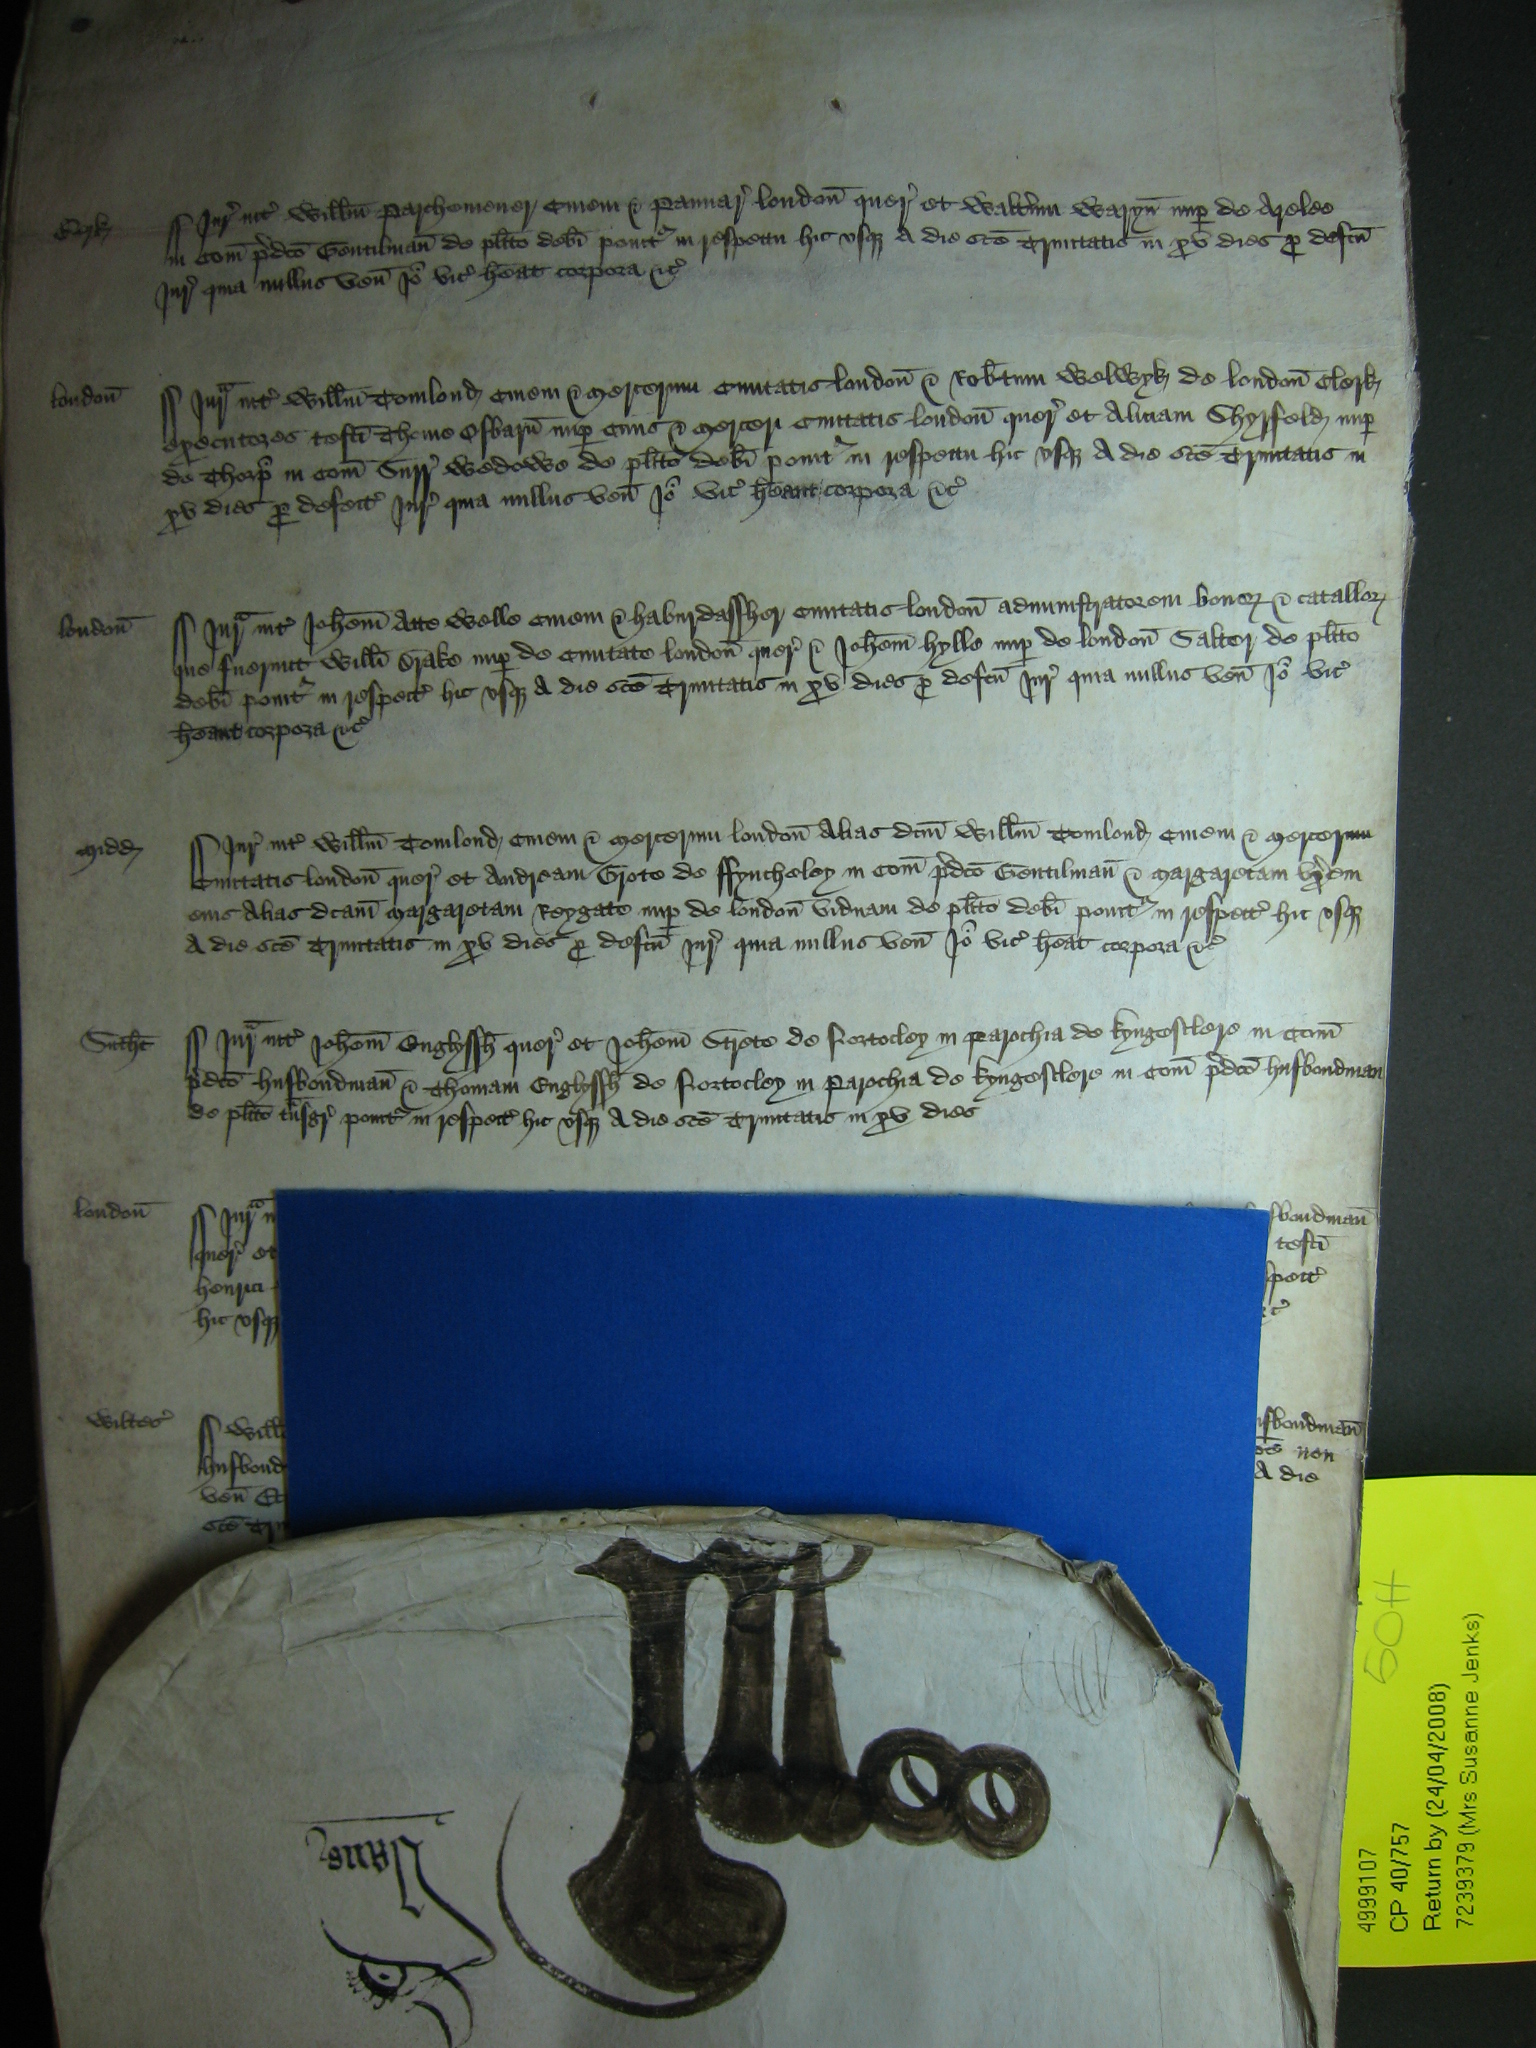 Essex
ss Jur' int' Will'm Parchemener Ciuem & Pannar' london' quer' et Walt'um Waryn' nup' de
in Com' p'dc'o Gentilman' de pl'ito deb'i ponit' in respectu hic vsq' A die s'ce Trinitatis in xv dies p' defc'u
Jur' quia nullus ven' Jo' vic' h'eat corpora &c'
london'
ss Jur' int' Will'm Tomlond Ciuem & Mercerum Ciuitatis london' & Rob'tum Welwyk de london' Clerk
executores test'i Thome Osbarn' nup' Ciuis & Merceri Ciuitatis london' quer' et Aliciam Shyrfeld nup'
de Thorp' in Com' Surr' Wedowe de pl'ito deb'i ponit' in respectu hic vsq' A die s'ce Trinitatis in
xv dies p' defect' Jur' quia nullus ven' Jo' vic' h'eant corpora &c'
london'
ss Jur' int' Joh'em Atte Welle Ciuem & haburdassher Ciuitatis london' administratorem bonor' & catallor'
que fuerunt Will'i Drake nup' de Ciuitate london' quer' & Joh'em hylle nup' de london' Salter de pl'ito
deb'i ponit' in respect' hic vsq' A die s'ce Trinitatis in xv dies p' defc'u Jur' quia nullus ven' Jo' vic'
h'eant corpora &c'
Midd'
ss Jur' int' Will'm Tomlond Ciuem & Mercerum london' Alias dc'm Will'm Tomlond Ciuem & Mercerum
Ciuitatis london' quer' et Andream Grote de ffyncheley in Com' p'dc'o Gentilman' & Margaretam vx'em
eius Alias dc'am Margaretam Reygate nup' de london' viduam de pl'ito deb'i ponit' in respect' hic vsq'
A die s'ce Trinitatis in xv dies p' defc'u Jur' quia nullus ven' Jo' vic' h'eat corpora &c'
Suth't
ss Jur' int' Joh'em Englyssh' quer' et Joh'em Strete de Nortocley in Parochia de kyngesclere in Com'
p'dc'o husbondman' & Thomam Englyssh' de Nortocley in Parochia de kyngesclere in Com' p'dc'o husbondman
de pl'ito t'nsgr' ponit' in respect' hic vsq' A die s'ce Trinitatis in xv dies
london'
ss Jur'
sbondman'
quer' et
test'i
henrici
spect'
hic vsq'
&c'
Wiltes'
ss Will
usbondman'
husbond
non
ven' Et
A die
s'ce Tri
4999107
CP 40/757
Return by (24/04/2008)
7239379 (Mrs Susanne Jenks)
50H